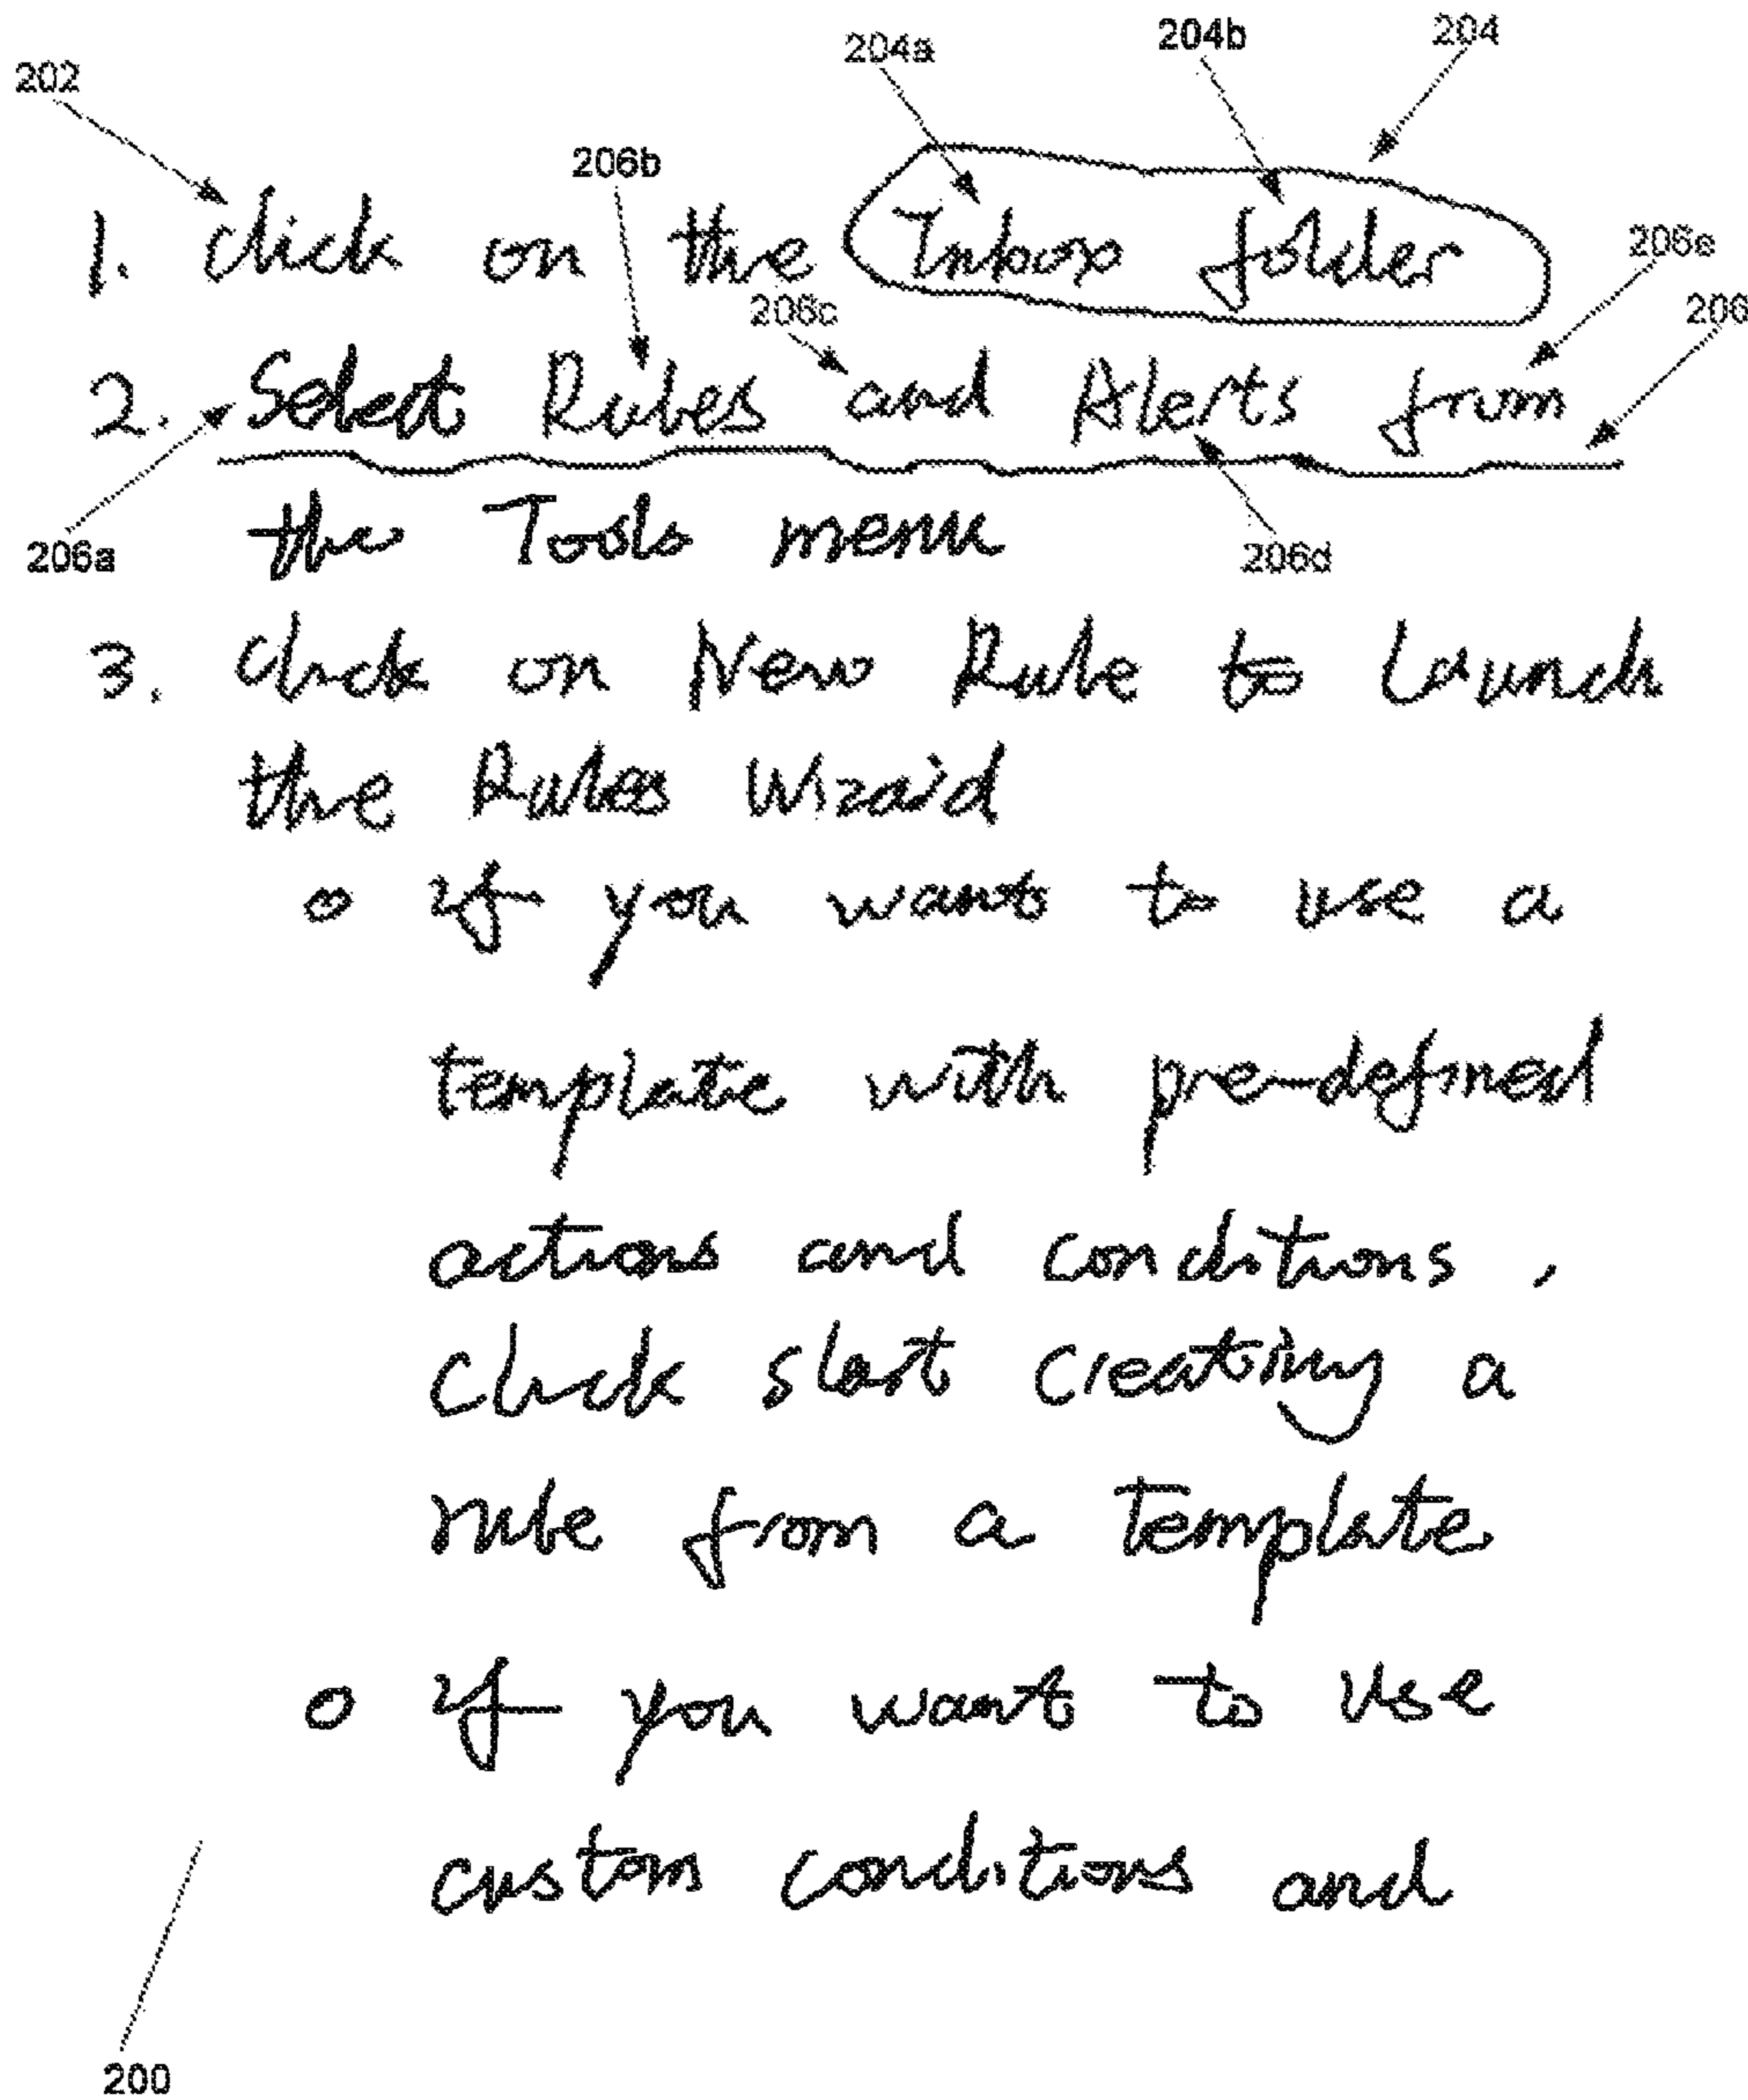 204a 204b 204
202
206b
1. Click on the Inbox folder
206c 206e
206
2. Select Rules and Alerts from
206a the Tools menu 206d
3. Click on New Rule to Launch
the Rules Wizard
o if you want to use a
template with pre-defined
actions and conditions,
Click start creating a
rule from a template
o if you want to use
custom conditions and
200